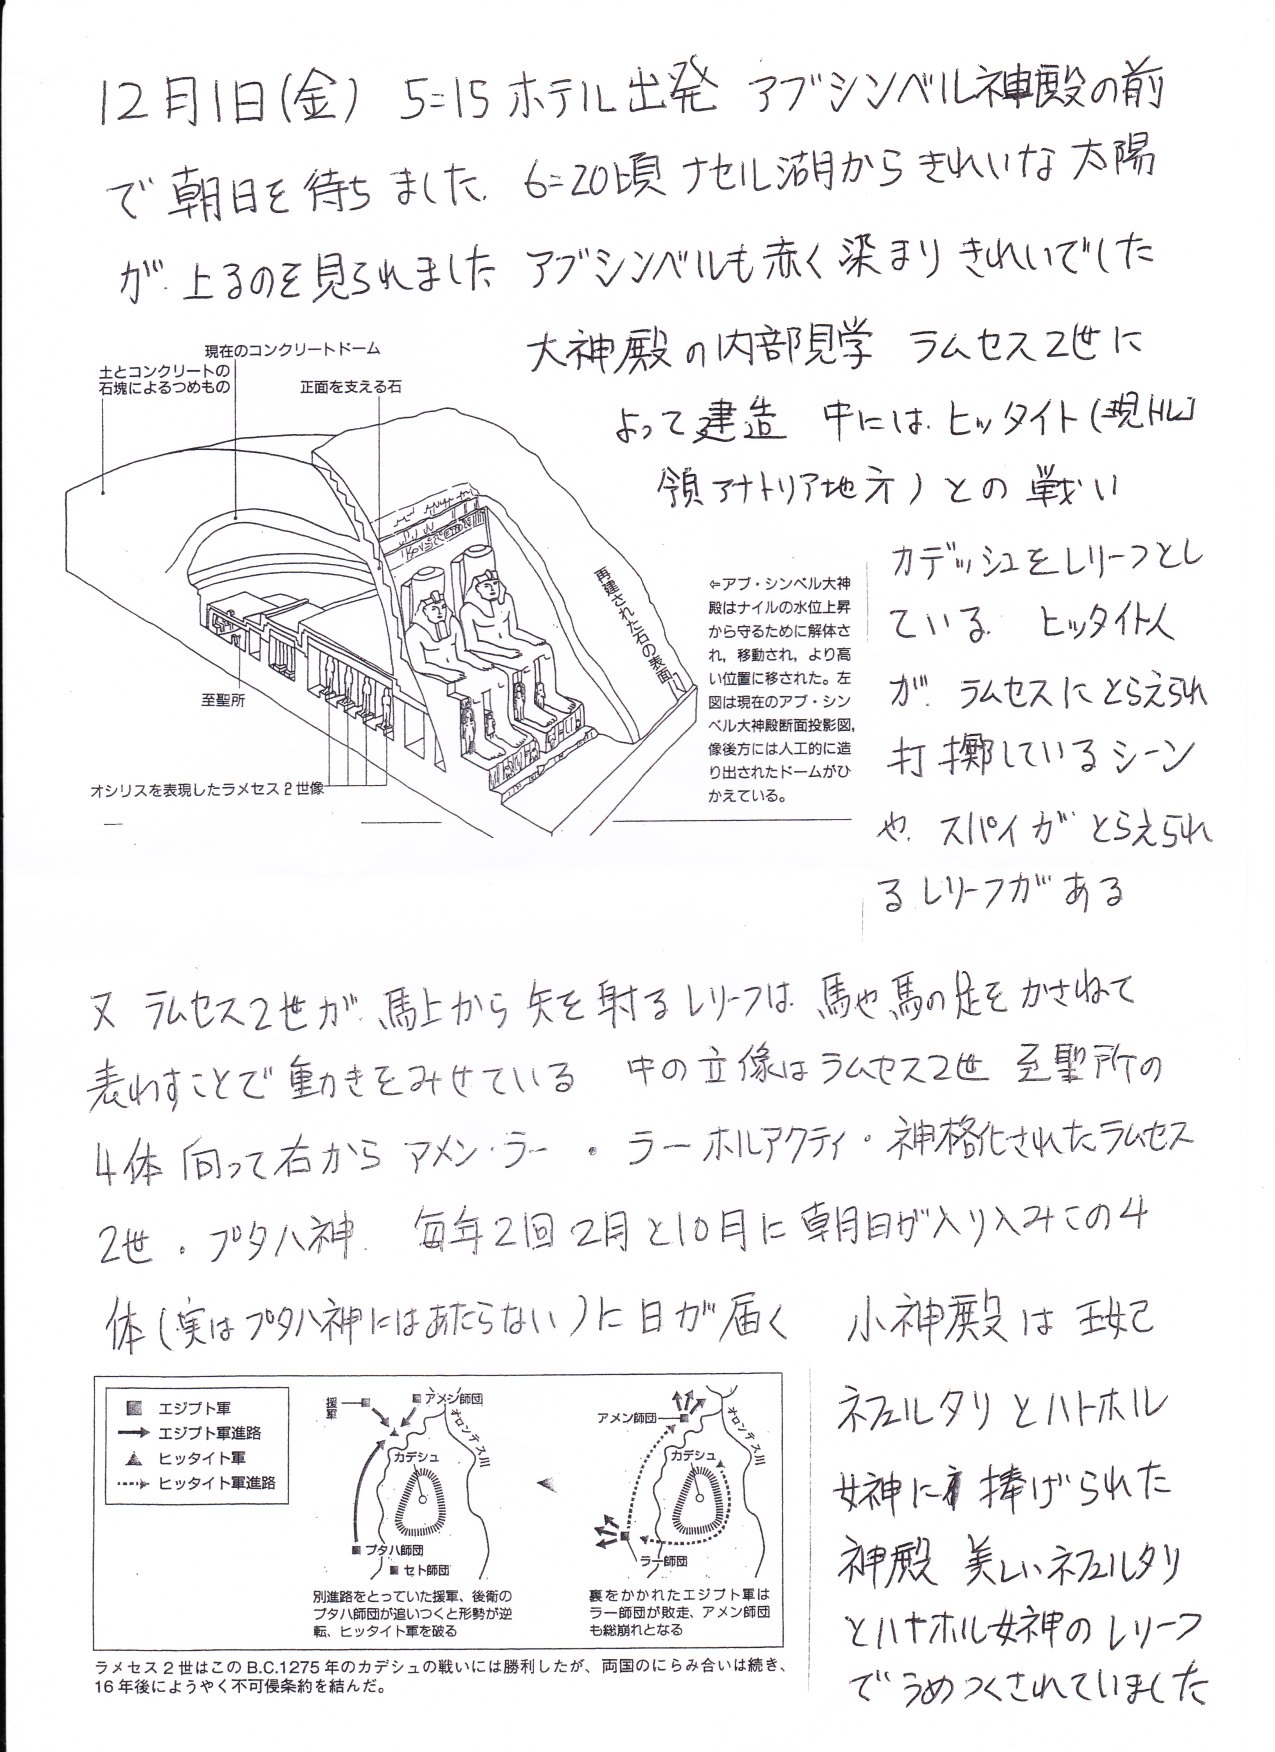 12月1日(金) 5=15 ホテル出発 アブシンベル神殿の前
で朝日を待ちました. 6=20頃 ナセル湖からきれいな太陽
が上るのを見られました アブシンベルも赤く染まりきれいでした
大神殿の内部見学 ラムセス2世に
よって建造 中には ヒッタイト(現トルコ
領アナトリア地方)との戦い
カデッシュをレリーフとし
ている ヒッタイト人
が ラムセスにとらえられ
打擲しているシーン
や スパイがとらえられ
るレリーフがある
現在のコンクリートドーム
土とコンクリートの
石塊によるつめもの
正面を支える石
再建された石の表面
至聖所
オシリスを表現したラメセス2世像
⇐アブ・シンベル大神
殿はナイルの水位上昇
から守るために解体さ
れ，移動され，より高
い位置に移された。左
図は現在のアブ・シン
ベル大神殿断面投影図，
像後方には人工的に造
り出されたドームがひ
かえている。
又 ラムセス2世が 馬上から 矢を射るレリーフは 馬や馬の足をかさねて
表わすことで動きをみせている 中の立像はラムセス2世 至聖所の
4体 向って右から アメン・ラー・ラーホルアクティ・神格化されたラムセス
2世・プタハ神 毎年2回 2月と10月に朝日が入り込みこの4
体(実はプタハ神にはあたらない)に日が届く 小神殿は 王妃
ネフェルタリとハトホル
女神に捧げられた
神殿 美しいネフェルタリ
とハトホル女神のレリーフ
でうめつくされていました
エジプト軍
エジプト軍進路
ヒッタイト軍
ヒッタイト軍進路
援軍
アメン師団
オロンテス川
カデシュ
プタハ師団
セト師団
別進路をとっていた援軍、後衛の
プタハ師団が追いつくと形勢が逆
転、ヒッタイト軍を破る
アメン師団
オロンテス川
カデシュ
ラー師団
裏をかかれたエジプト軍は
ラー師団が敗走、アメン師団
も総崩れとなる
ラメセス2世はこのB.C.1275年のカデシュの戦いには勝利したが、両国のにらみ合いは続き、
16年後にようやく不可侵条約を結んだ。